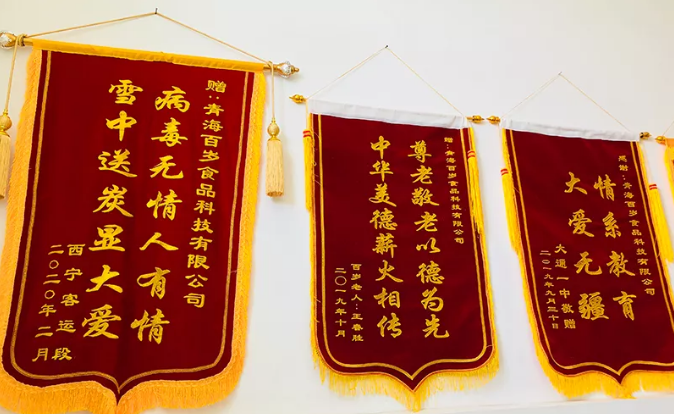 赠:青海百岁食品科技有限公司
病毒无情人有情
雪中送炭显大爱
西宁客运段
二〇二〇年二月
赠:青海百岁食品科技有限公司
尊老敬老以德为先
中华美德薪火相传
百岁老人:王春胜
二〇一九年十月
感谢:青海百岁食品科技有限公司
情系教育
大爱无疆
大通一中敬赠
二〇一九年九月